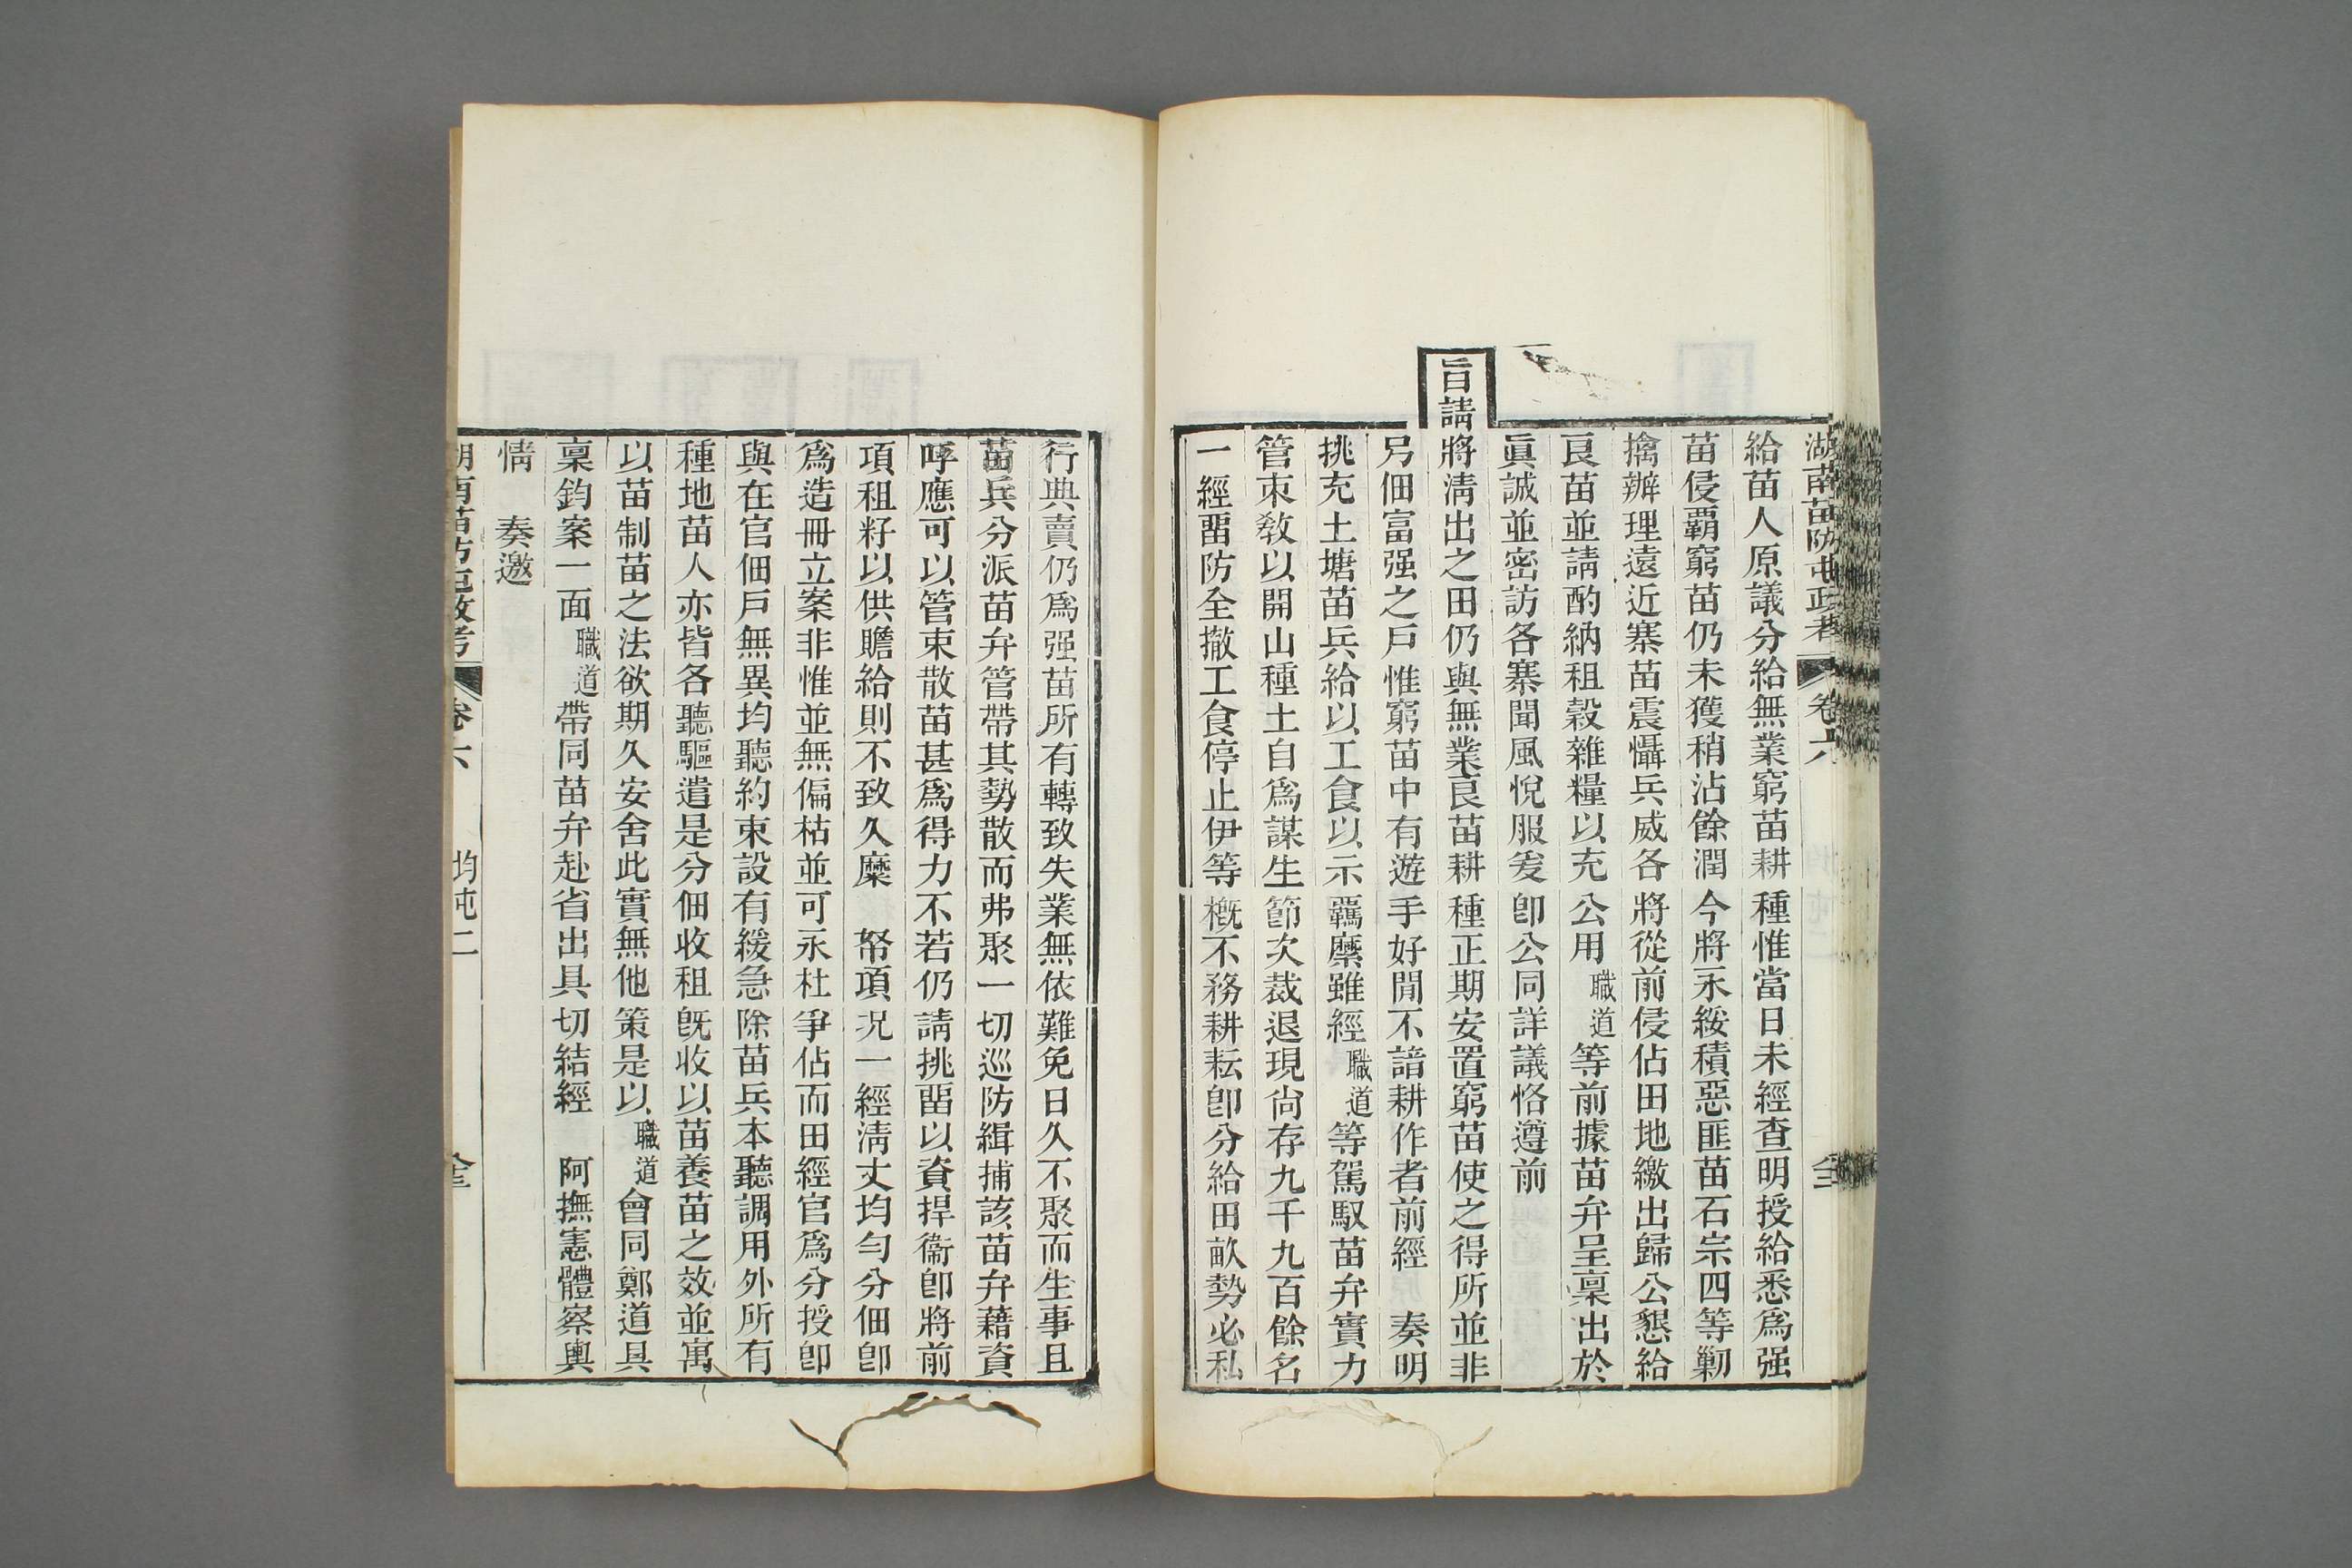 湖南苗防屯政考 卷六
給苗人原議分給無業窮苗耕種惟當日未經查明授給悉爲强
苗侵覇窮苗仍未獲稍沾餘潤今將永綏積惡匪苗石宗四等剿
擒辦理遠近寨苗震懾兵威各將從前侵佔田地繳出歸公懇給
良苗並請酌納租穀雜糧以充公用職道等前據苗弁呈稟出於
眞誠並密訪各寨聞風悅服爰卽公同詳議恪遵前
旨請將淸出之田仍與無業良苗耕種正期安置窮苗使之得所並非
另佃富强之戶惟窮苗中有遊手好閒不諳耕作者前經 奏明
挑充土塘苗兵給以工食以示羈縻雖經職道等駕馭苗弁實力
管束敎以開山種土自爲謀生節次裁退現尙存九千九百餘名
一經畱防全撤工食停止伊等槪不務耕耘卽分給田畝勢必私
行典賣仍爲强苗所有轉致失業無依難免日久不聚而生事且
苗兵分派苗弁管帶其勢散而弗聚一切巡防緝捕該苗弁藉資
呼應可以管束散苗甚爲得力不若仍請挑畱以資捍衞卽將前
項租籽以供贍給則不致久縻 帑項况一經淸丈均勻分佃卽
爲造冊立案非惟並無偏枯並可永杜爭佔而田經官爲分授卽
與在官佃戶無異均聽約束設有緩急除苗兵本聽調用外所有
種地苗人亦皆各聽驅遣是分佃收租旣收以苗養苗之效並寓
以苗制苗之法欲期久安舍此實無他策是以職道會同鄭道具
稟鈞案一面職道帶同苗弁赴省出具切結經 阿撫憲體察輿
情 奏邀
湖南苗防屯政考 卷六 均屯二